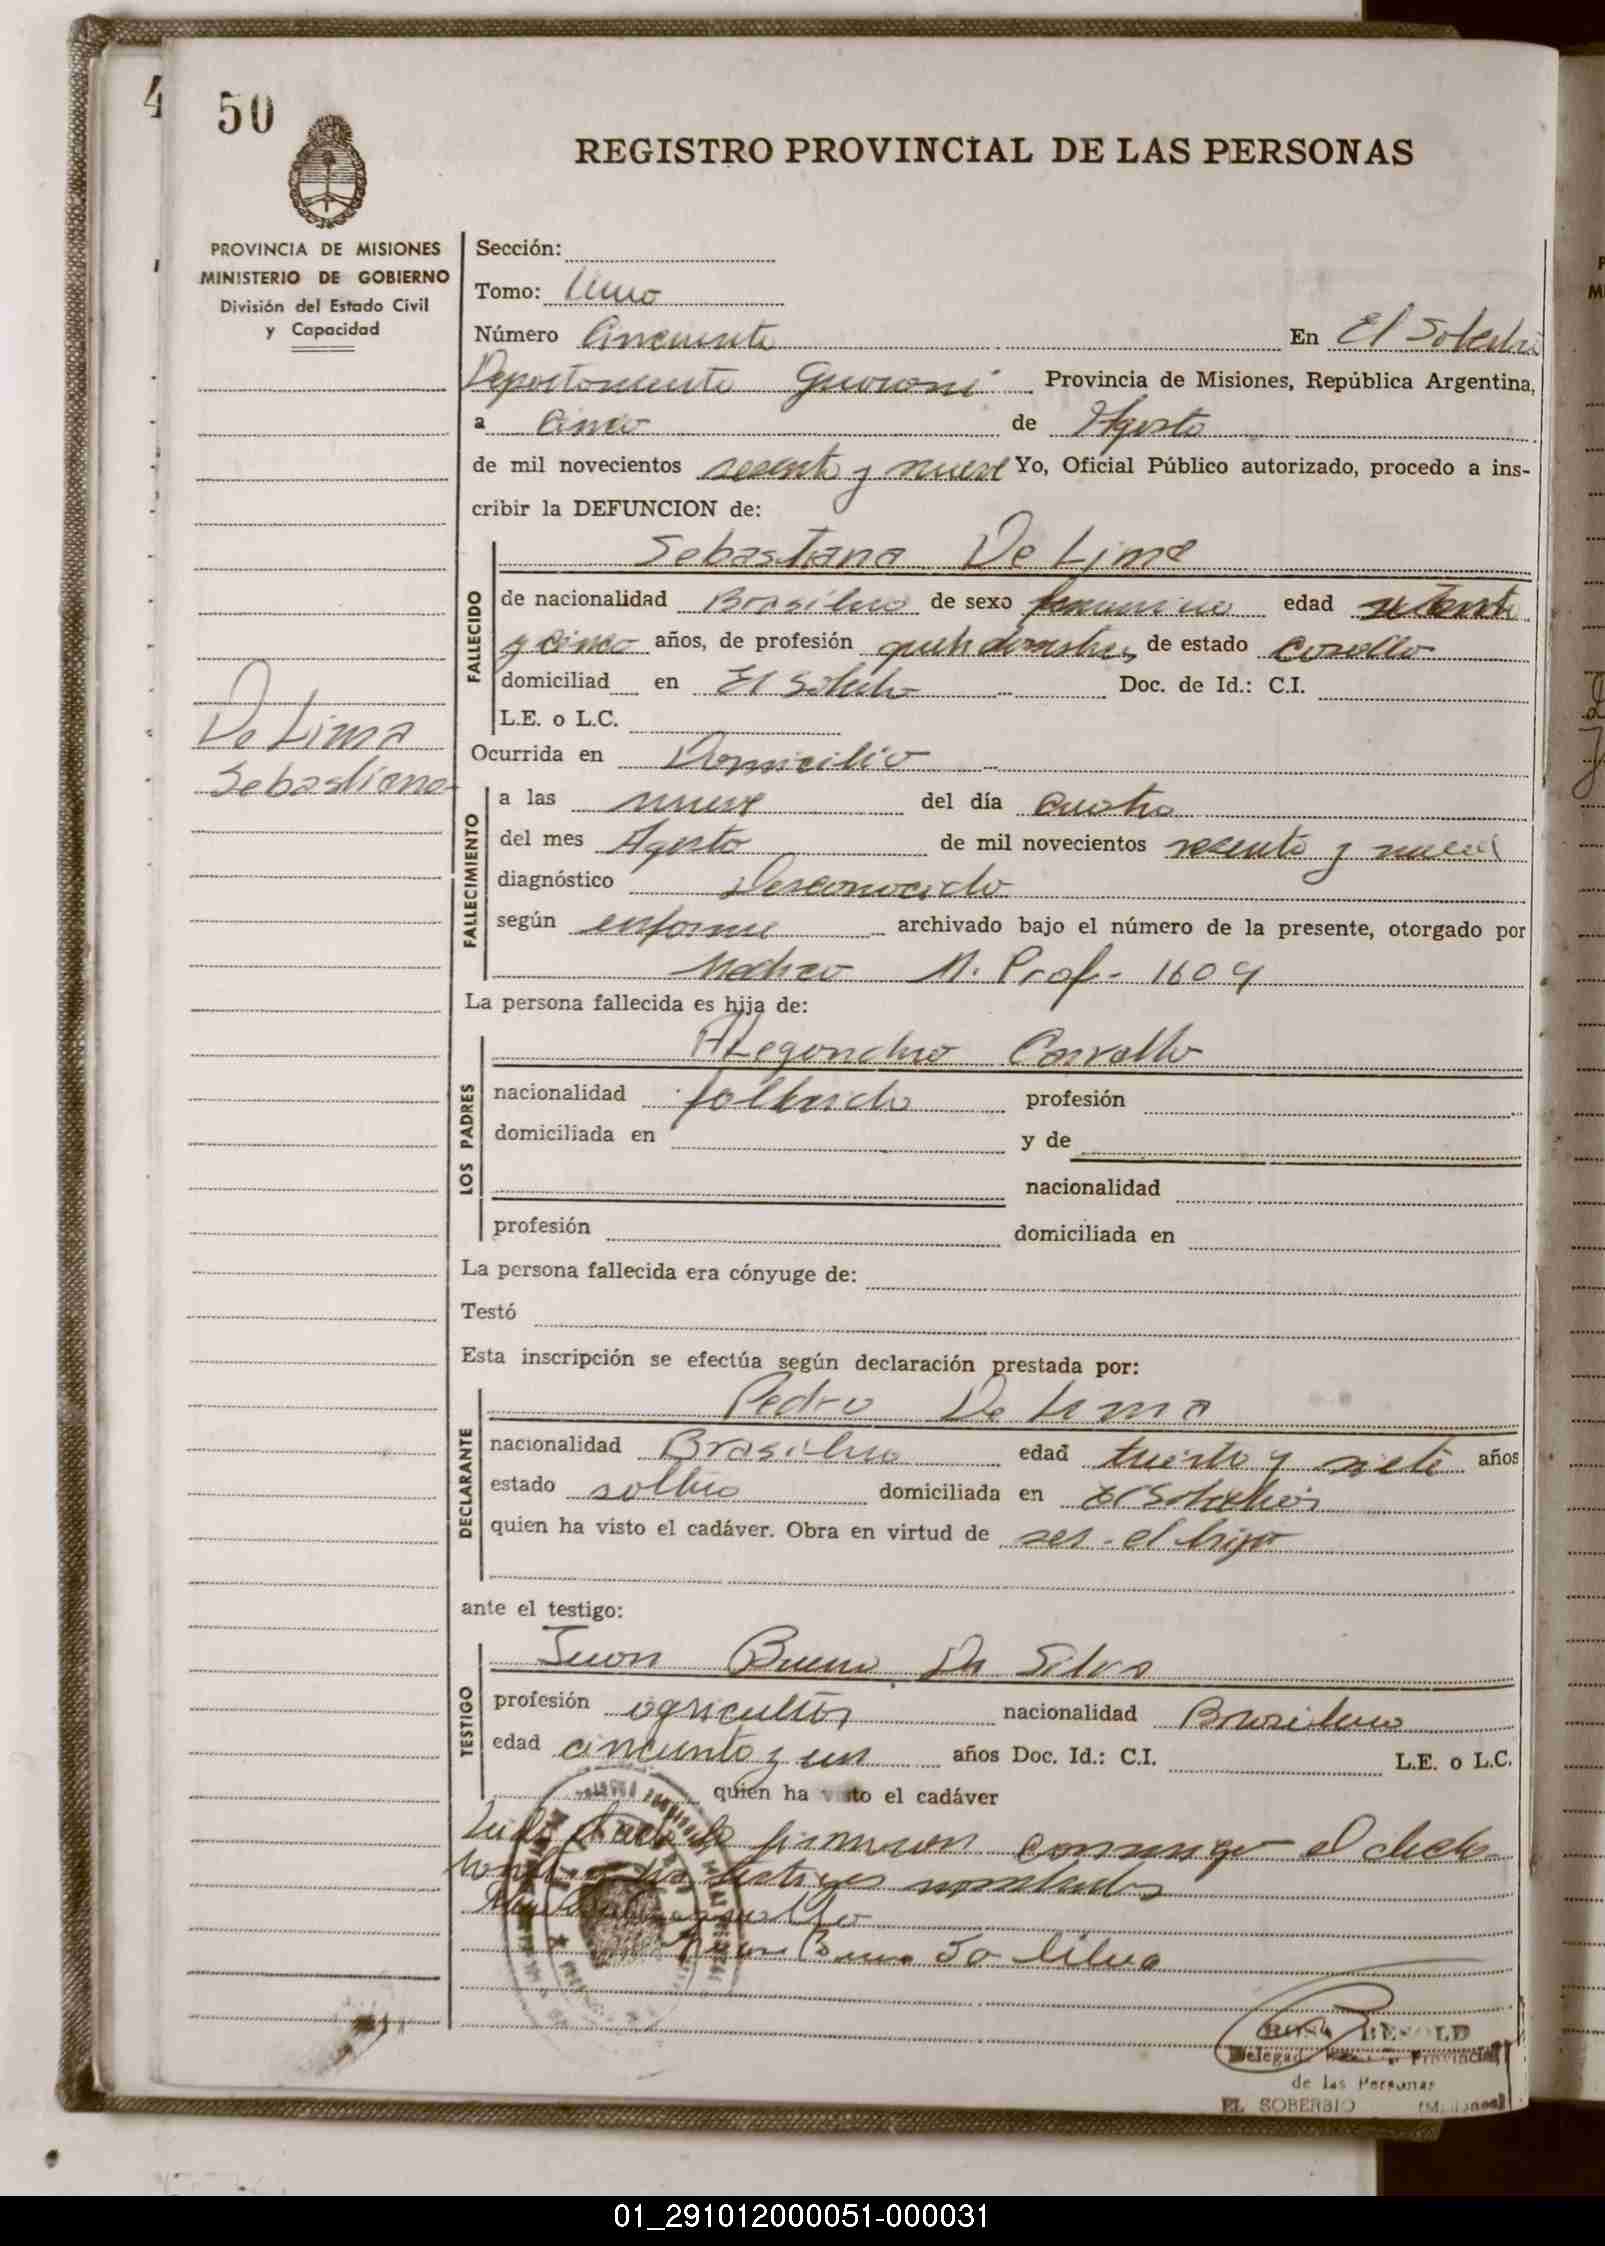 50
REGISTRO PROVINCIAL DE LAS PERSONAS
PROVINCIA DE MISIONES
MINISTERIO DE GOBIERNO
División del Estado Civil
y Capacidad
Sección:
Tomo: Uno
Número Cincuenta En El Soberbio
Departamento Guarani Provincia de Misiones, República Argentina,
a Cinco de Agosto
de mil novecientos sesenta y nueve Yo, Oficial Público autorizado, procedo a ins-
cribir la DEFUNCION de:
Sebastiana De Lima
FALLECIDO
de nacionalidad Brasilera de sexo femenino edad setenta
y cinco años, de profesión de estado
domiciliad en El Soberbio Doc. de Id.: C.I.
L.E. o L.C.
De Lima
Sebastiana
Ocurrida en Domicilio
FALLECIMIENTO
a las nueve del día cuatro
del mes Agosto de mil novecientos sesenta y nueve
diagnóstico Desconocido
según informe archivado bajo el número de la presente, otorgado por
Medico M. Prof- 1609
La persona fallecida es hija de:
LOS PADRES
Carvallo
nacionalidad profesión
domiciliada en y de
nacionalidad
profesión domiciliada en
La persona fallecida era cónyuge de:
Testó
Esta inscripción se efectúa según declaración prestada por:
DECLARANTE
Pedro De Lima
nacionalidad Brasilero edad treinta y siete años
estado soltero domiciliada en El Soberbio
quien ha visto el cadáver. Obra en virtud de ser el hijo
ante el testigo:
TESTIGO
Juan Bueno Da Silva
profesión agricultor nacionalidad Brasilero
edad cincuenta y un años Doc. Id.: C.I. L.E. o L.C.
quien ha visto el cadáver
firmaron conmigo el decla-
testigos nombrados
Bueno Da Silva
ROSA BESOLD
Provincial
de las Personas
EL SOBERBIO (Misiones)
01_291012000051-000031